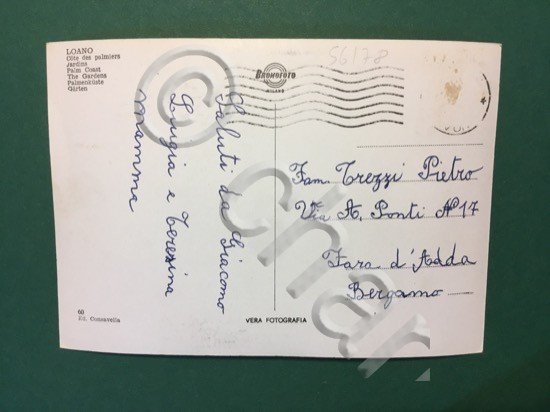 LOANO
Côte des palmiers
Jardins
Palm Coast
The Gardens
Palmenküste
Gärten
BROMOFOTO
MILANO
56178
Saluti da Giacomo
Luigia e Teresina
mamma
Fam. Trezzi Pietro
Via A. Ponti Nº 17
Fara d'Adda
Bergamo
60
Ed. Consavella
VERA FOTOGRAFIA